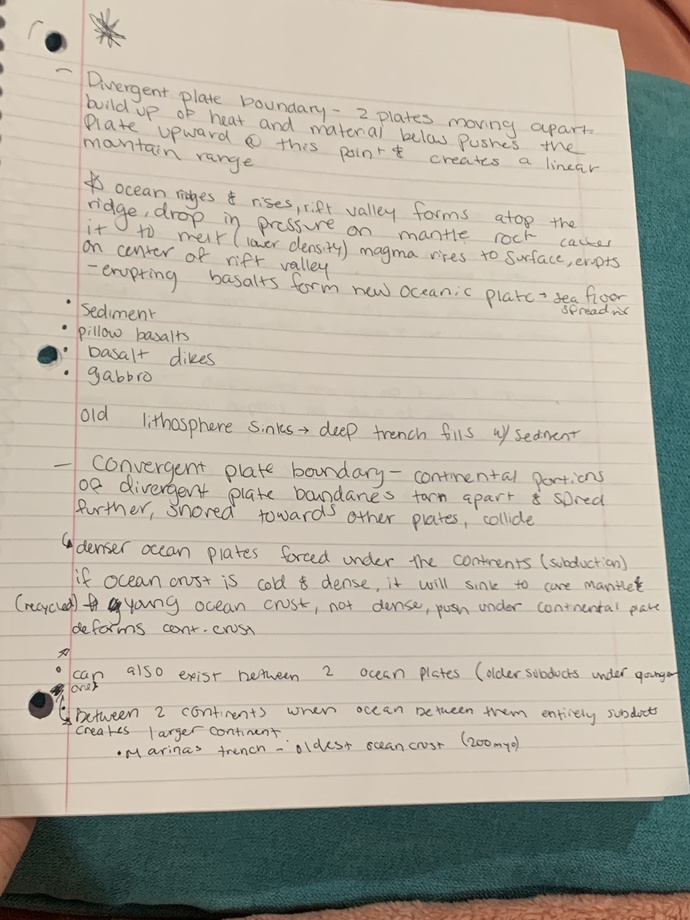 - Divergent plate boundary - 2 plates moving apart
build up of heat and material below pushes the
plate upward @ this point & creates a linear
mountain range
ocean ridges & rises, rift valley forms atop the
ridge, drop in pressure on mantle rock causes
it to melt (lower density) magma rises to surface, erupts
on center of rift valley
- erupting basalts form new oceanic plate → sea floor
spreading
• sediment
• pillow basalts
• basalt dikes
• gabbro
old lithosphere sinks → deep trench fills w/ sediment
- Convergent plate boundary - continental portions
of divergent plate boundaries torn apart & spred
further, shoved towards other plates, collide
↳ denser ocean plates forced under the continents (subduction)
if ocean crust is cold & dense, it will sink to core mantle
(recycled) young ocean crust, not dense, push under continental plate
deforms cont. crust
• can also exist between 2 ocean plates (older subducts under younger
one)
↳ between 2 continents when ocean between them entirely subducts
creates larger continent
• Marinas trench - oldest ocean crust (200myo)